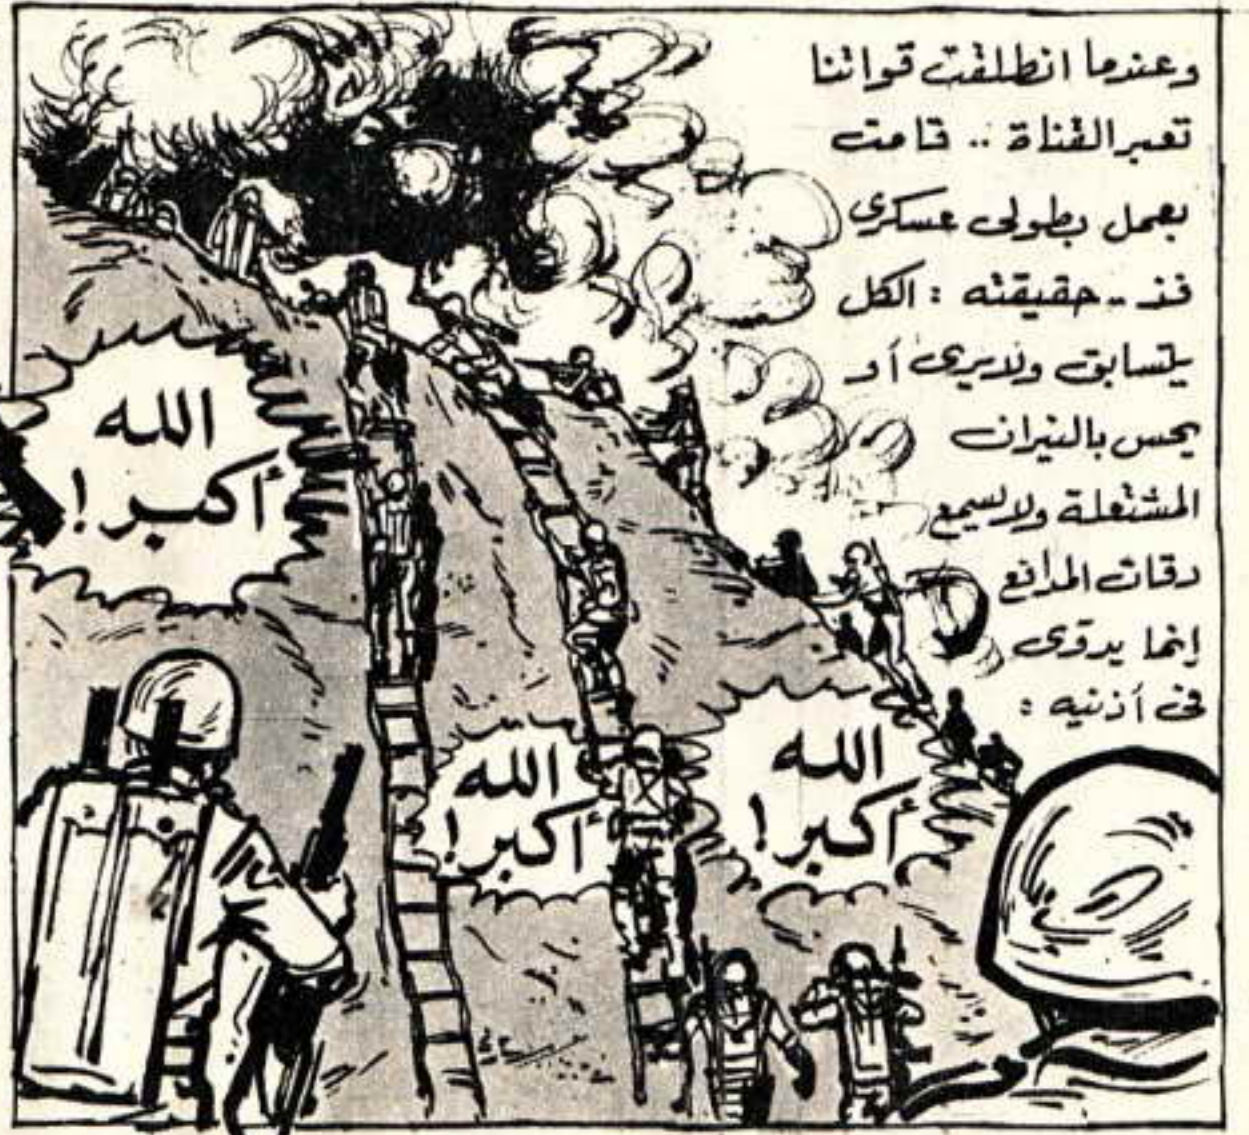 وعندما انطلقت قواتنا
تعبر القناة .. قامت
بعمل بطولى عسكرى
فذ .. حقيقته : الكل
يتسابق ولا يرى أو
يحس بالنيران
المشتعلة ولا يسمع
دقات المدافع
إنما يدوى
فى أذنيه :
الله
أكبر !
الله
أكبر !
الله
أكبر !